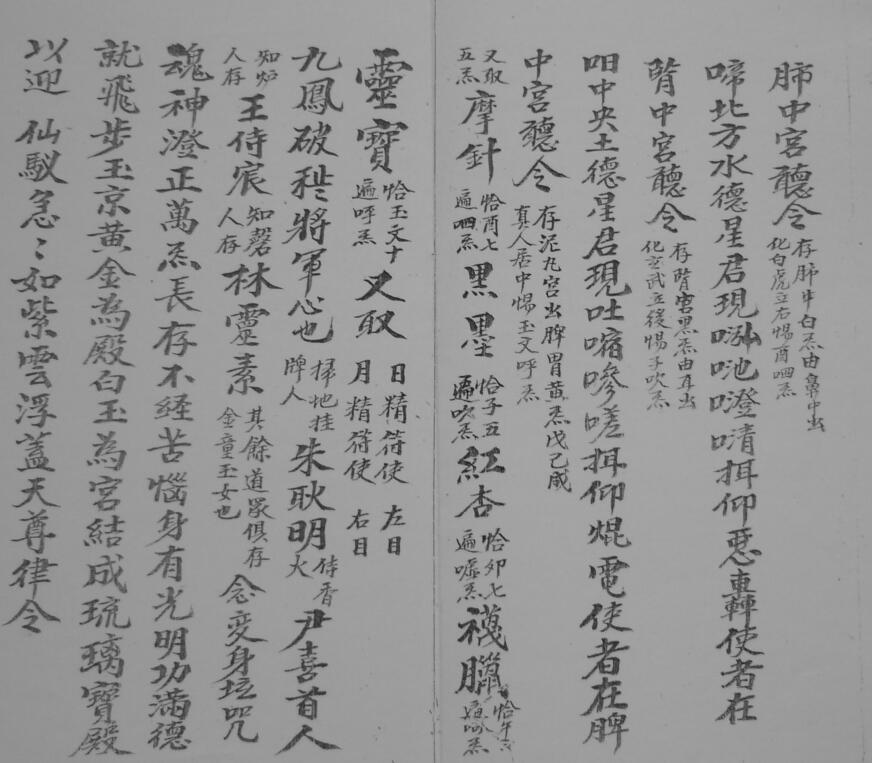 肺中宮聽令 存肺中白炁由鼻中出化白虎立右惕酉呬炁
啼北方水德星君現哵咃噔啨揖仰惡轟使者在
腎中宮聽令 存腎宮黑炁由耳出化玄武立後惕子吹炁
呬中央土德星君現吐噏嘇嗟揖仰焜電使者在脾
中宮聽令 存泥九宮出脾胃黃炁戊己成真人居中惕玉文呼炁
又取五炁摩針 恰酉七遍呬炁 黑墨 恰子五遍吹炁 紅杏 恰卯七遍噓炁 襪臘 恰午六遍呵炁
靈寶 恰玉文十遍呼炁 又取 日精符使 左目 月精符使 右目
九鳳破秽將軍心也 掃地挂牌人 朱耿明 侍香火 尹喜首人
知炉人存 王侍宸 知磬人存 林靈素 其餘道眾俱存金童玉女也 念变身坛咒
魂神澄正萬炁長存不経苦惱身有光明功滿德
就飛步玉京黃金為殿白玉為宮結成琉璃寶殿
以迎 仙馭急〻如紫雲浮蓋天尊律令